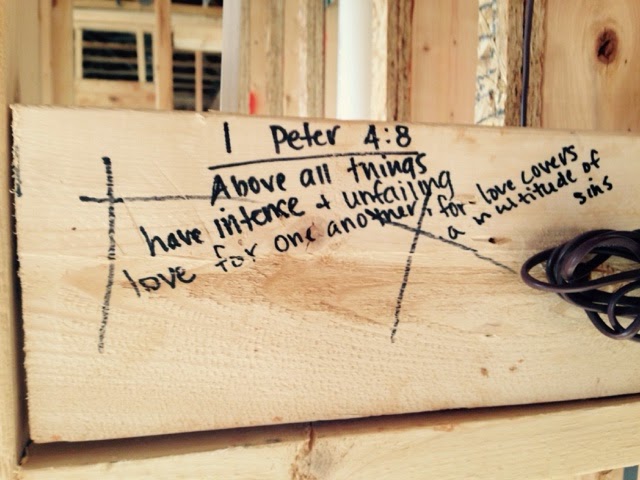 1 Peter 4:8
Above all things
have intense + unfailing
love for one another, for love covers
a multitude of
sins